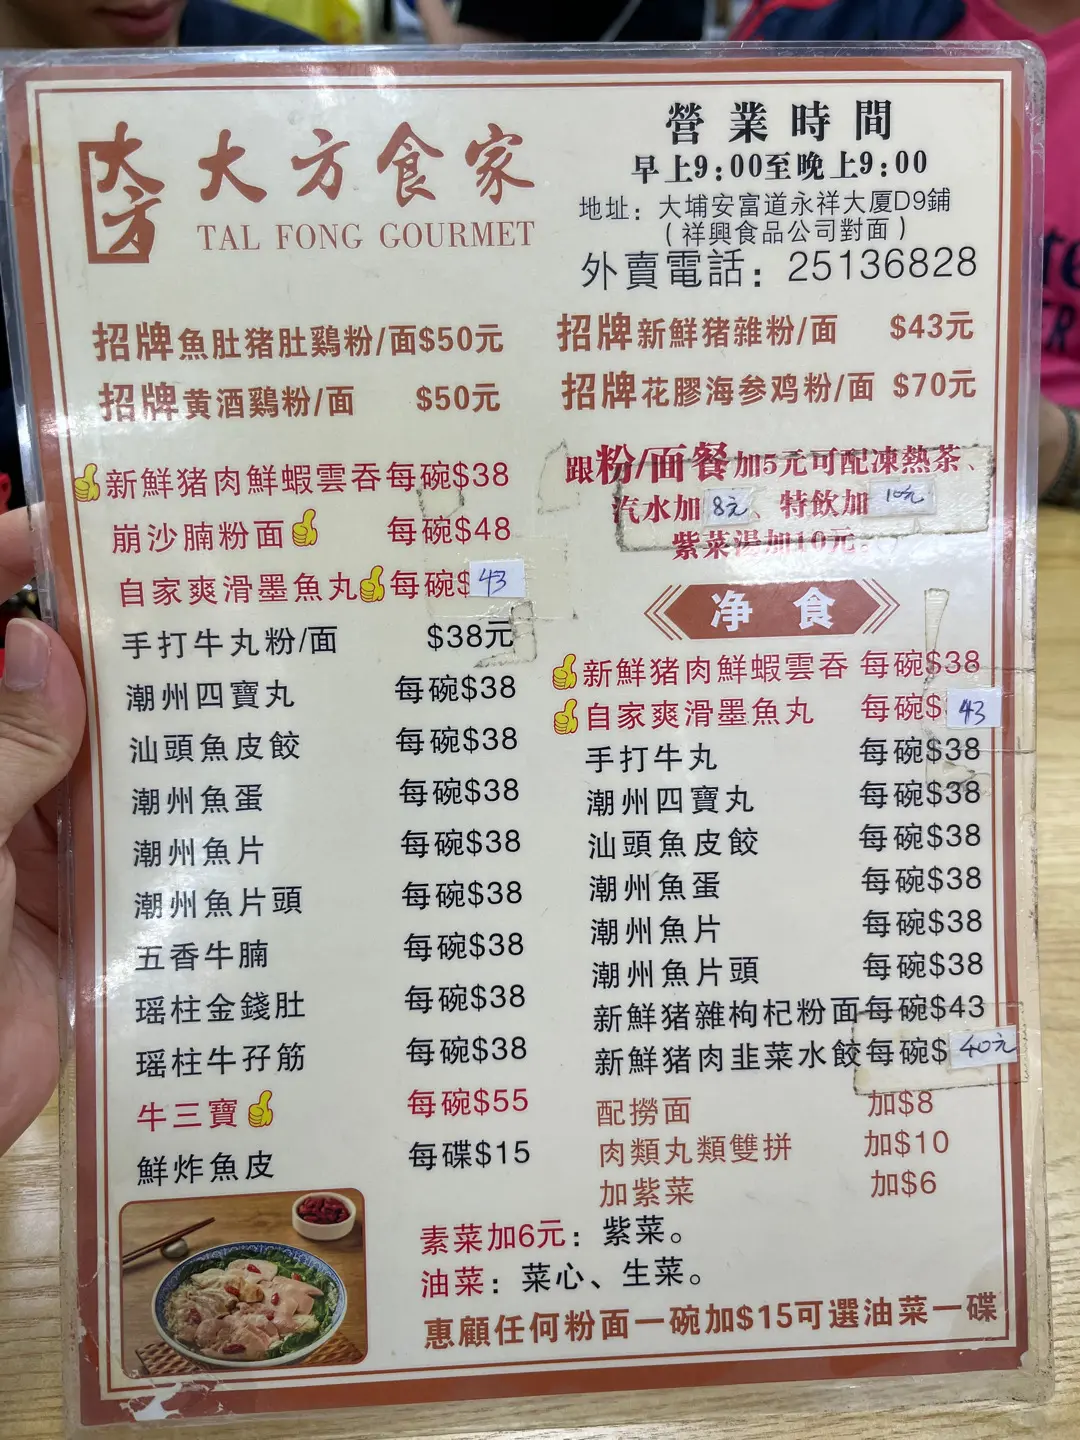 大方
大方食家
TAL FONG GOURMET
營業時間
早上9:00至晚上9:00
地址：大埔安富道永祥大厦D9鋪
(祥興食品公司對面)
外賣電話：25136828
招牌魚肚猪肚鷄粉/面$50元
招牌黄酒鷄粉/面 $50元
招牌新鮮猪雜粉/面 $43元
招牌花膠海参鸡粉/面 $70元
新鮮猪肉鮮蝦雲吞每碗$38
崩沙腩粉面 每碗$48
自家爽滑墨魚丸 每碗$43
手打牛丸粉/面 $38元
潮州四寶丸 每碗$38
汕頭魚皮餃 每碗$38
潮州魚蛋 每碗$38
潮州魚片 每碗$38
潮州魚片頭 每碗$38
五香牛腩 每碗$38
瑶柱金錢肚 每碗$38
瑶柱牛孖筋 每碗$38
牛三寶 每碗$55
鮮炸魚皮 每碟$15
跟粉/面餐加5元可配凍熱茶、
汽水加8元、特飲加10元
紫菜湯加10元。
净食
新鮮猪肉鮮蝦雲吞 每碗$38
自家爽滑墨魚丸 每碗$43
手打牛丸 每碗$38
潮州四寶丸 每碗$38
汕頭魚皮餃 每碗$38
潮州魚蛋 每碗$38
潮州魚片 每碗$38
潮州魚片頭 每碗$38
新鮮猪雜枸杞粉面每碗$43
新鮮猪肉韭菜水餃每碗$40元
配撈面 加$8
肉類丸類雙拼 加$10
加紫菜 加$6
素菜加6元：紫菜。
油菜：菜心、生菜。
惠顧任何粉面一碗加$15可選油菜一碟